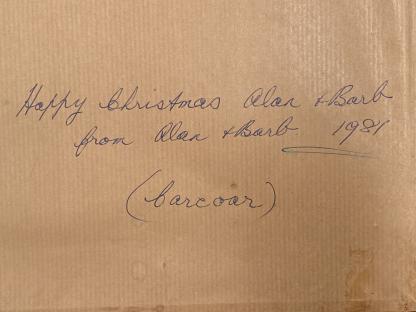 Happy Christmas Alan & Barb
from Alan & Barb. 1981
(Carcoar)